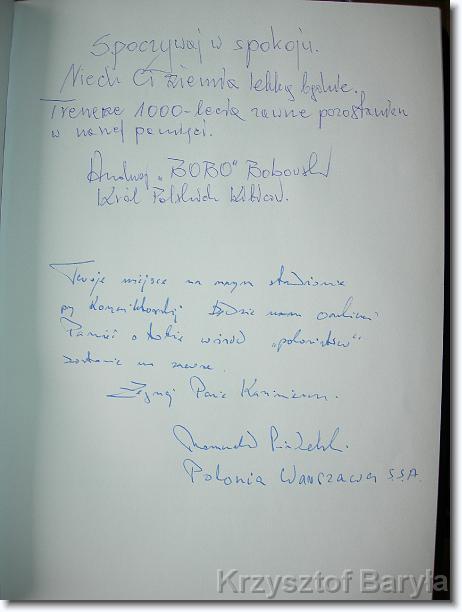 Spoczywaj w spokoju.
Niech Ci ziemia lekką będzie.
Trenerze 1000-lecia zawsze pozostaniesz
w naszej pamięci.
Andrzej „BOBO" Bobowski
Król Polskich Kibiców.
Twoje miejsce na naszym stadionie
przy Konwiktorskiej będzie nam
Pamięć o Tobie wśród „polonistów"
zostanie na zawsze.
Żegnaj Panie Kazimierzu.
Polonia Warszawa S.S.A.
Krzysztof Baryla